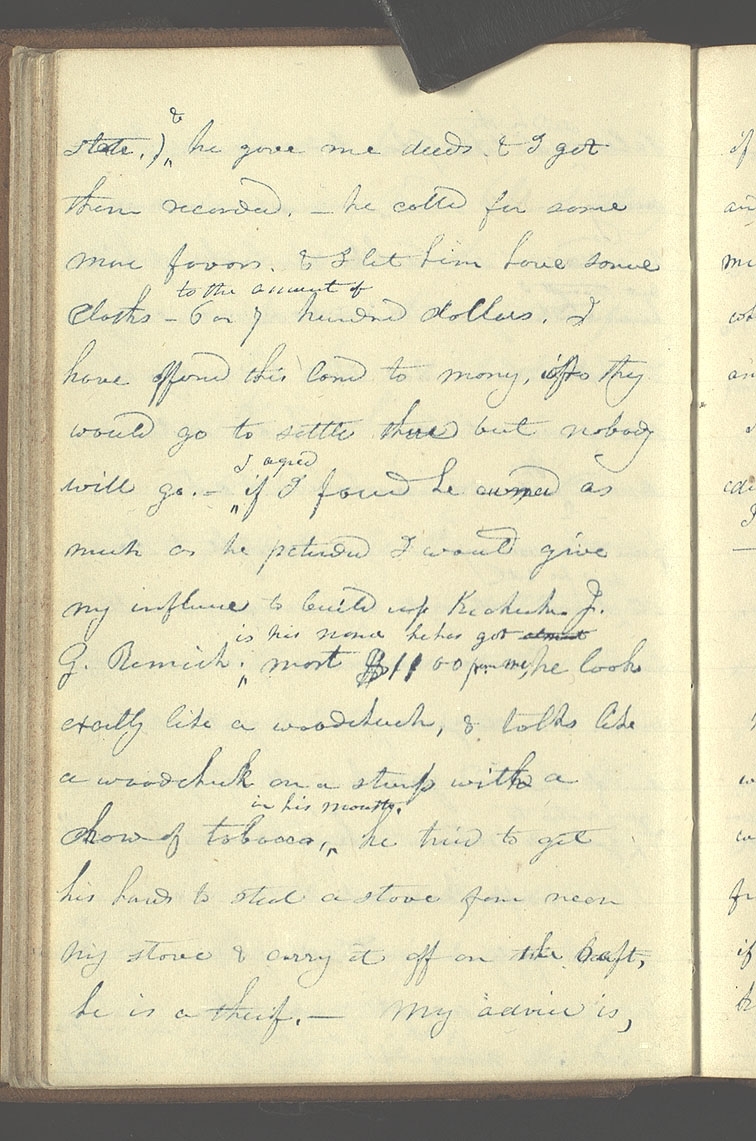 &
state.) „ he gave me deeds. & I got
them recorded. — he called for some
more favors. & I let him have some
to the amount of
Cloths — 6 or 7 hundred dollars. I
have offered this land to many, if they
would go to settle there but nobody
will go. — I agreed
„ if I found he owned as
much as he pretended I would give
my influence to build up Keokuk. J.
is his name he has got almost
G. Remick. „ most $1100 he look
exactly like a woodchuck, & talks like
a woodchuk on a stump with a
in his mouth.
Chow of tobacco, „ he tried to get
his hands to steal a stove from near
my store & carry it off on the Raft,
he is a theif. — My advice is,